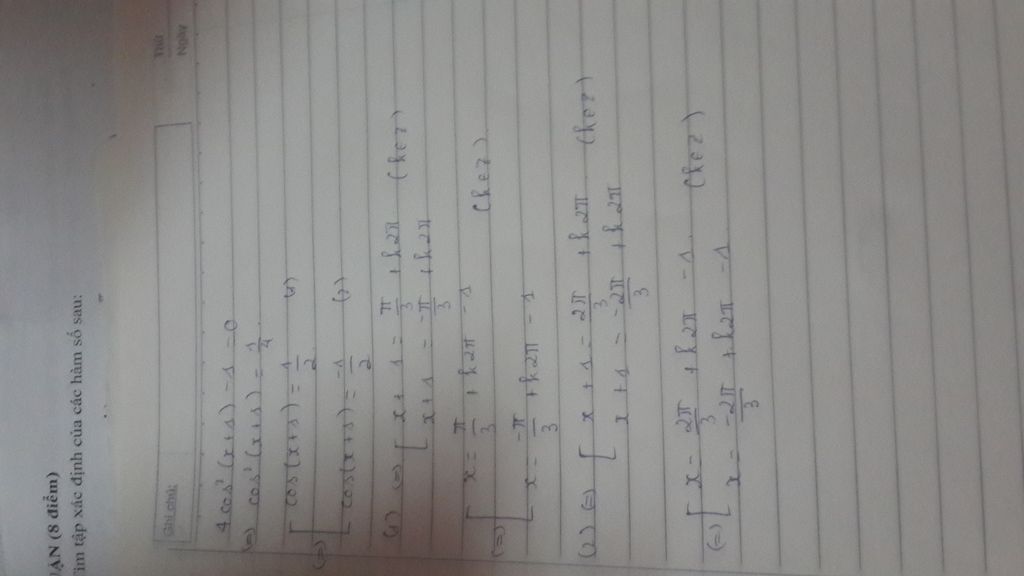 ẬN (8 điểm)
Tìm tập xác định của các hàm số sau:
Ghi chú:
Thứ
Ngày
4cos²(x+1) - 1 = 0
(=) cos²(x+1) = 1/4
(=) [ cos(x+1) = 1/2 (1)
[ cos(x+1) = -1/2 (2)
(1) (=) [ x + 1 = π/3 + k2π (k∈Z)
[ x + 1 = -π/3 + k2π
(=) [ x = π/3 + k2π - 1 (k∈Z)
[ x = -π/3 + k2π - 1
(2) (=) [ x + 1 = 2π/3 + k2π (k∈Z)
[ x + 1 = -2π/3 + k2π
(=) [ x = 2π/3 + k2π - 1 (k∈Z)
[ x = -2π/3 + k2π - 1